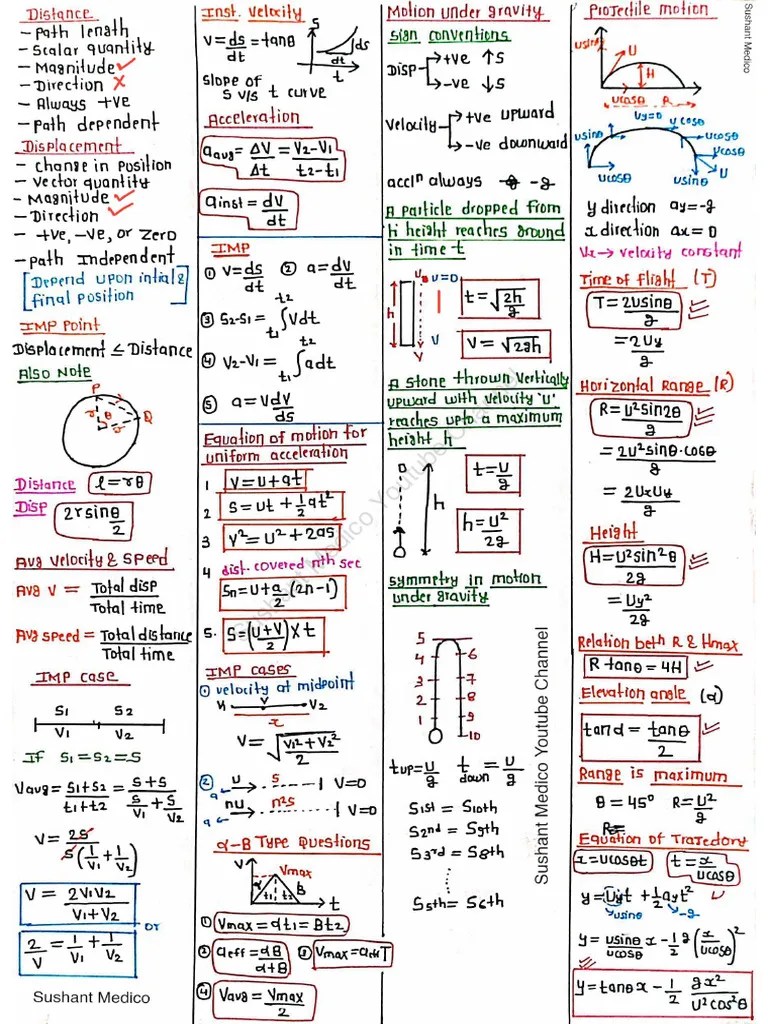 Distance
- Path length
- Scalar quantity
- Magnitude ✓
- Direction ✗
- Always +ve
- Path dependent
Displacement
- Change in Position
- Vector quantity
- Magnitude ✓
- Direction ✓
- +ve, -ve, or zero
- Path Independent
[Depend upon intial &
final position]
IMP Point
Displacement ≤ Distance
Also Note
P
r θ r
Q
Distance l = rθ
Disp 2r sinθ/2
Avg velocity & Speed
Avg V = Total disp / Total time
Avg speed = Total distance / Total time
IMP case
S1 S2
V1 V2
If S1 = S2 = S
Vavg = S1+S2 / t1+t2 = S+S / S/V1 + S/V2
V = 2S / S(1/V1 + 1/V2)
V = 2V1V2 / V1+V2
or
2/V = 1/V1 + 1/V2
Sushant Medico
Inst. Velocity
V = ds/dt = tanθ
S
ds
dt
t
slope of
S v/s t curve
Acceleration
aavg = ΔV/Δt = V2-V1 / t2-t1
ainst = dV/dt
IMP
① V = ds/dt ② a = dV/dt
③ S2-S1 = t1∫t2 Vdt
④ V2-V1 = t1∫t2 adt
⑤ a = VdV/ds
Equation of motion for
uniform acceleration
1 V = u + at
2 S = ut + 1/2 at²
3 V² = U² + 2as
4 dist. covered nth sec
Sn = U + a/2 (2n-1)
5. S = (U+V/2) × t
IMP cases
① velocity at midpoint
V V2
x
V = √V1²+V2² / 2
② u S V=0
a
nu n²s V=0
a
α-B Type Questions
V
Vmax
α t1 t2 B
t
① Vmax = αt1 = Bt2
② aeff = αB / α+B ③ Vmax = aeff T
④ Vavg = Vmax / 2
Motion under gravity
sign conventions
Disp +ve ↑S
-ve ↓S
Velocity +ve upward
-ve downward
accⁿ always -g
A Particle dropped from
h height reaches ground
in time t
u=0
h
V
t = √2h/g
V = √2gh
A stone thrown vertically
upward with velocity 'u'
reaches upto a maximum
height h
h
t = U/g
h = U²/2g
symmetry in motion
under gravity
5
4 6
3 7
2 8
1 9
10
tup = U/g tdown = U/g
S1st = S10th
S2nd = S9th
S3rd = S8th
S5th = S6th
Sushant Medico Youtube Channel
Sushant Medico Youtube Channel
Projectile motion
Sushant Medico
usinθ U
H
ucosθ R
Uy=0
usinθ ucosθ
ucosθ
ucosθ
ucosθ
usinθ U
y direction ay = -g
x direction ax = 0
Vx → velocity constant
Time of flight (T)
T = 2usinθ / g
= 2Uy / g
Horizontal Range (R)
R = U²sin2θ / g
= 2U²sinθ·cosθ / g
= 2UxUy / g
Height
H = U²sin²θ / 2g
= Uy² / 2g
Relation beth R & Hmax
R tanθ = 4H
Elevation angle (α)
tanα = tanθ / 2
Range is maximum
θ = 45° R = U²/g
Equation of Trajectory
x = ucosθt t = x / ucosθ
y = Uyt + 1/2 ayt²
usinθ -g
y = usinθ/ucosθ x - 1/2 g (x/ucosθ)²
y = tanθx - 1/2 gx² / U²cos²θ